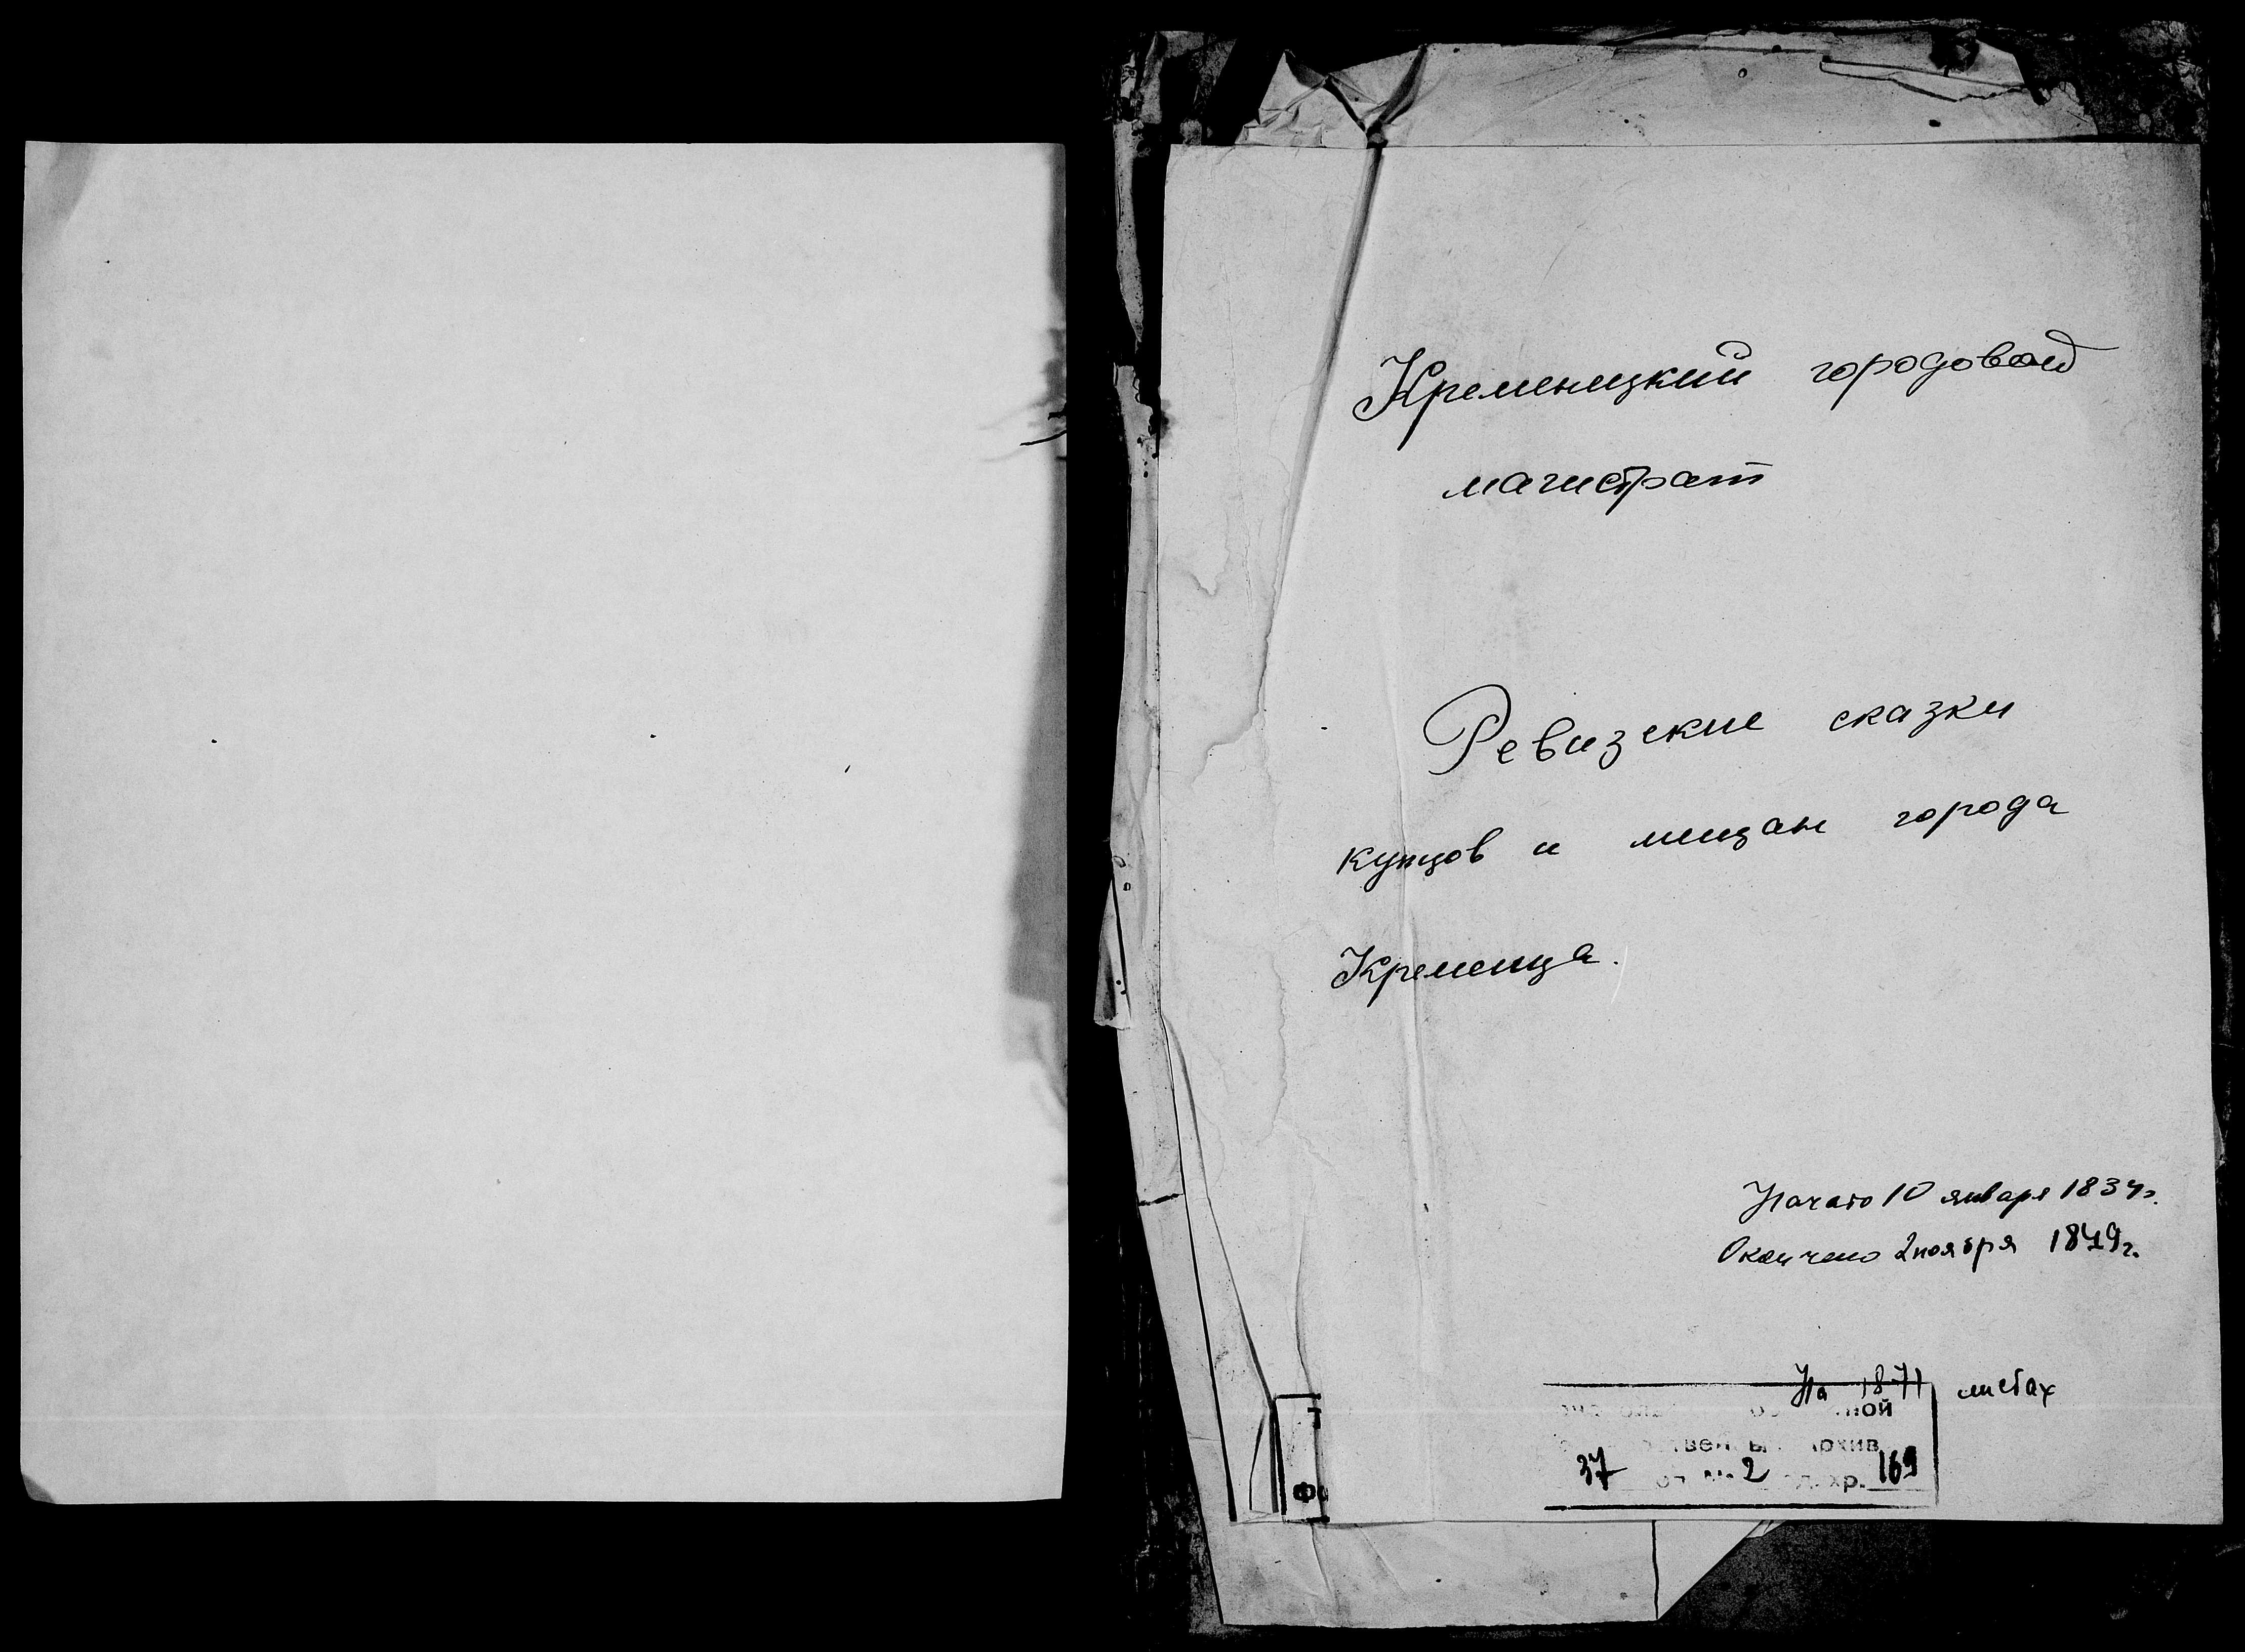 Кременецкий городовой
магистрат
Ревизские сказки
купцов и мещан города
Кременца.
Начато 10 января 1834г.
Окончено 2 ноября 1849г.
На 1871 листах
37 2 хр. 169